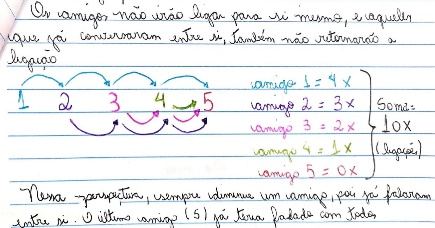 Os amigos não irão ligar para si mesmo, e aqueles
que já conversaram entre si, também não retornarão a
ligação
1 2 3 4 5
amigo 1 = 4x
amigo 2 = 3x
amigo 3 = 2x
amigo 4 = 1x
amigo 5 = 0x
Soma =
10x
(ligações)
Nessa perspectiva, sempre diminue um amigo, pois já falaram
entre si. O último amigo (5) já teria falado com todos